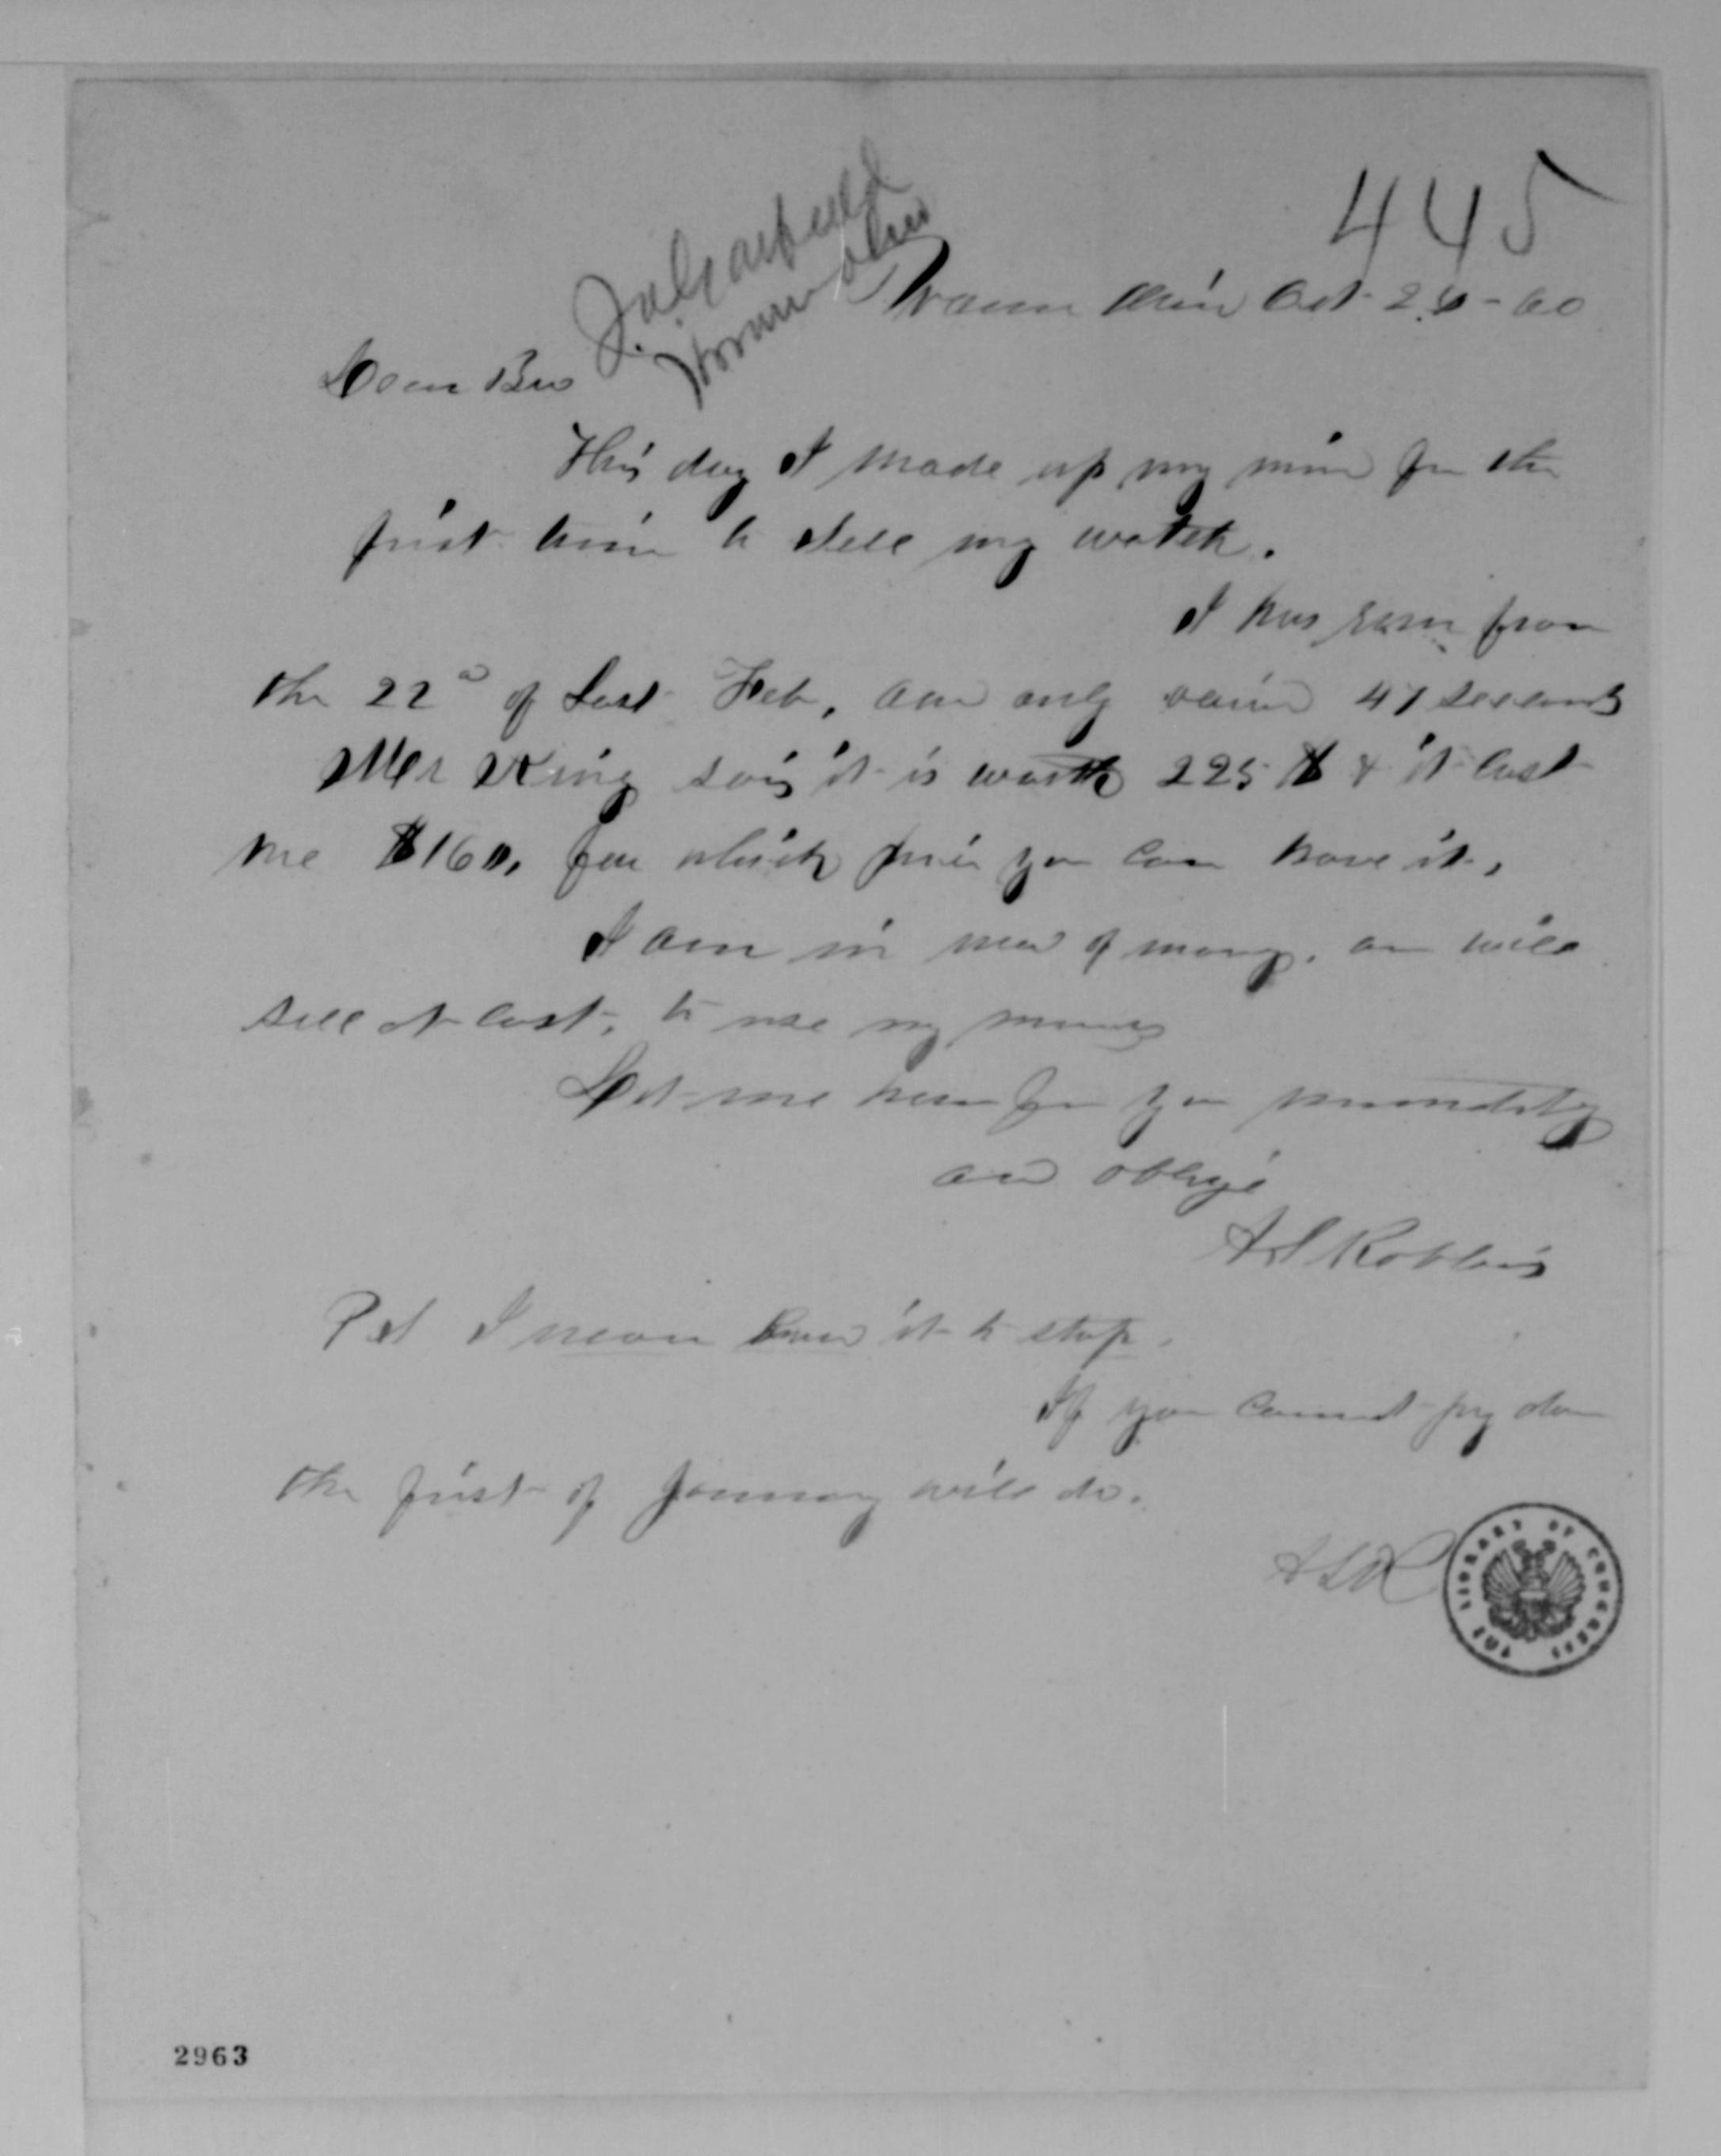 445
J. A. Garfield
Hiram Ohio
Warren Ohio Oct 2 - 60
Dear Bro
This day I made up my mind for the
first time to sell my watch.
I has run from
the 22d of Last Feb, and only varied 47 seconds
Mr King says it is worth 225 $ & it cost
me $160, for which price you can have it,
I am in need of money. and will
sell at cost, to use my money
Let me hear from you immediately
and oblige
A S Robbins
P S I never knew it to stop.
If you cannot pay down
the first of January will do.
A S R
THE LIBRARY OF CONGRESS
2963